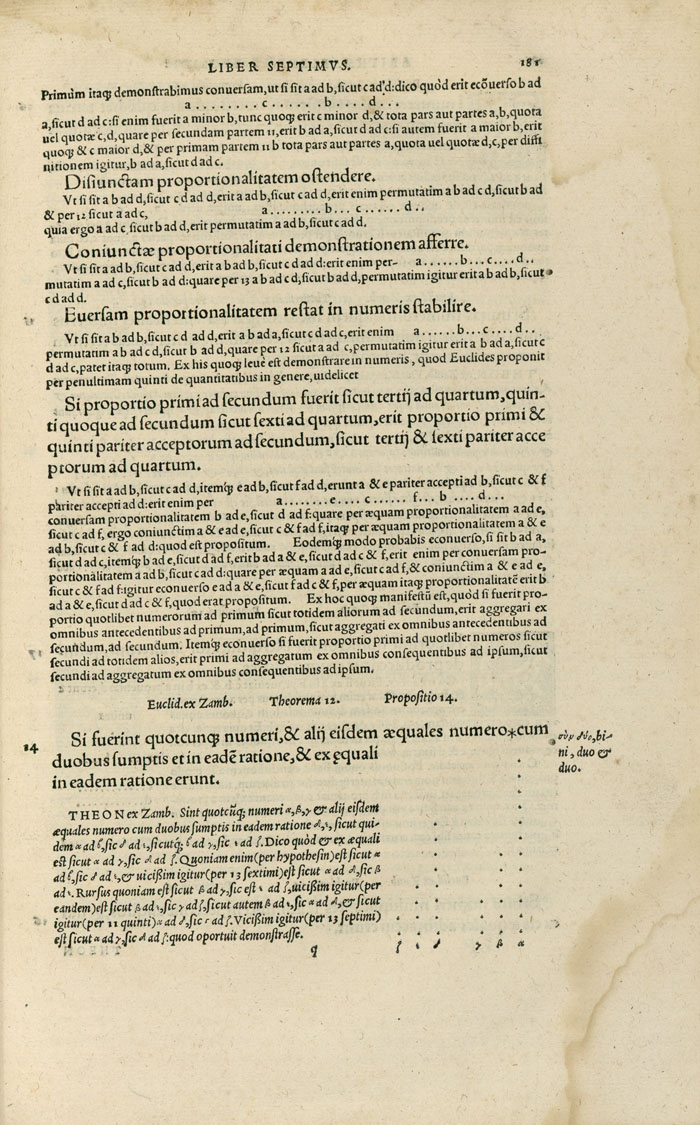 LIBER SEPTIMVS. 181
Primùm itaq; demonstrabimus conuersam, ut si sit a ad b, sicut c ad d: dico quòd erit ecõuerso b ad
a . . . . . . . . c . . . . . . b . . . . d . . .
a, sicut d ad c: si enim fuerit a minor b, tunc quoq; erit c minor d, & tota pars aut partes a, b, quota
uel quotæ c, d, quare per secundam partem 11, erit b ad a, sicut d ad c: si autem fuerit a maior b, erit
quoq; & c maior d, & per primam partem 11 b tota pars aut partes a, quota uel quotæ d, c, per diffi
nitionem igitur, b ad a, sicut d ad c.
Disiunctam proportionalitatem ostendere.
Vt si sit a b ad d, sicut c d ad d, erit a ad b, sicut c ad d, erit enim permutatim a b ad c d, sicut b ad
& per 12 sicut a ad c, a . . . . . . . . b . . . c . . . . . . d . .
quia ergo a ad c, sicut b ad d, erit permutatim a ad b, sicut c ad d.
Coniunctæ proportionalitati demonstrationem afferre.
Vt si sit a ad b, sicut c ad d, erit a b ad b, sicut c d ad d: erit enim per- a . . . . . . b . . . c . . . . d . .
mutatim a ad c, sicut b ad d: quare per 13 a b ad c d, sicut b ad d, permutatim igitur erit a b ad b, sicut
c d ad d.
Euersam proportionalitatem restat in numeris stabilire.
Vt si sit a b ad b, sicut c d ad d, erit a b ad a, sicut c d ad c, erit enim a . . . . . . b . . . c . . . . d . .
permutatim a b ad c d, sicut b ad d, quare per 12 sicut a ad c, permutatim igitur erit a b ad a, sicut c
d ad c, patet itaq; totum. Ex his quoq; leue est demonstrare in numeris, quod Euclides proponit
per penultimam quinti de quantitatibus in genere, uidelicet
Si proportio primi ad secundum fuerit sicut tertij ad quartum, quin-
ti quoque ad secundum sicut sexti ad quartum, erit proportio primi &
quinti pariter acceptorum ad secundum, sicut tertij & sexti pariter acce
ptorum ad quartum.
Vt si sit a ad b, sicut c ad d, itemq; e ad b, sicut f ad d, erunt a & e pariter accepti ad b, sicut c & f
pariter accepti ad d: erit enim per a . . . . . . . . e . . . . c . . . . . . f . . . b . . . . d . . .
conuersam proportionalitatem b ad e, sicut d ad f: quare per æquam proportionalitatem a ad e,
sicut c ad f, ergo coniunctim a & e ad e, sicut c & f ad f, itaq; per æquam proportionalitatem a & e
ad b, sicut c & f ad d: quod est propositum. Eodemq; modo probabis econuerso, si sit b ad a,
sicut d ad c, itemq; b ad e, sicut d ad f, erit b ad a & e, sicut d ad c & f, erit enim per conuersam pro-
portionalitatem a ad b, sicut c ad d: quare per æquam a ad e, sicut c ad f, & coniunctim a & e ad e,
sicut c & f ad f: igitur econuerso e ad a & e, sicut f ad c & f, per æquam itaq; proportionalitatẽ erit b
ad a & e, sicut d ad c & f, quod erat propositum. Ex hoc quoq; manifestũ est, quòd si fuerit pro-
portio quotlibet numerorum ad primum sicut totidem aliorum ad secundum, erit aggregari ex
omnibus antecedentibus ad primum, ad primum, sicut aggregati ex omnibus antecedentibus ad
secundum, ad secundum. Itemq; econuerso si fuerit proportio primi ad quotlibet numeros sicut
secundi ad totidem alios, erit primi ad aggregatum ex omnibus consequentibus ad ipsum, sicut
secundi ad aggregatum ex omnibus consequentibus ad ipsum.
Euclid. ex Zamb. Theorema 12. Propositio 14.
14 Si fuerint quotcunq; numeri, & alij eisdem æquales numero*cum
duobus sumptis et in eadẽ ratione, & ex ęquali
in eadem ratione erunt.
σὺν δύο, bi-
ni, duo &
duo.
THEON ex Zamb. Sint quotcũq; numeri α, β, γ & alij eisdem
æquales numero cum duobus sumptis in eadem ratione δ, ε, sicut qui-
dem α ad β, sic δ ad ε, sicut q; β ad γ, sic ε ad ζ. Dico quòd & ex æquali
est sicut α ad γ, sic δ ad ζ. Quoniam enim (per hypothesin) est sicut α
ad β, sic δ ad ε, & uicißim igitur (per 13 septimi) est sicut α ad δ, sic β
ad ε. Rursus quoniam est sicut β ad γ, sic est ε ad ζ, uicißim igitur (per
eandem) est sicut β ad ε, sic γ ad ζ, sicut autem β ad ε, sic α ad δ, & sicut
igitur (per 11 quinti) α ad δ, sic γ ad ζ. Vicißim igitur (per 13 septimi)
est sicut α ad γ, sic δ ad ζ: quod oportuit demonstrasse.
ζ ε δ γ β α
q